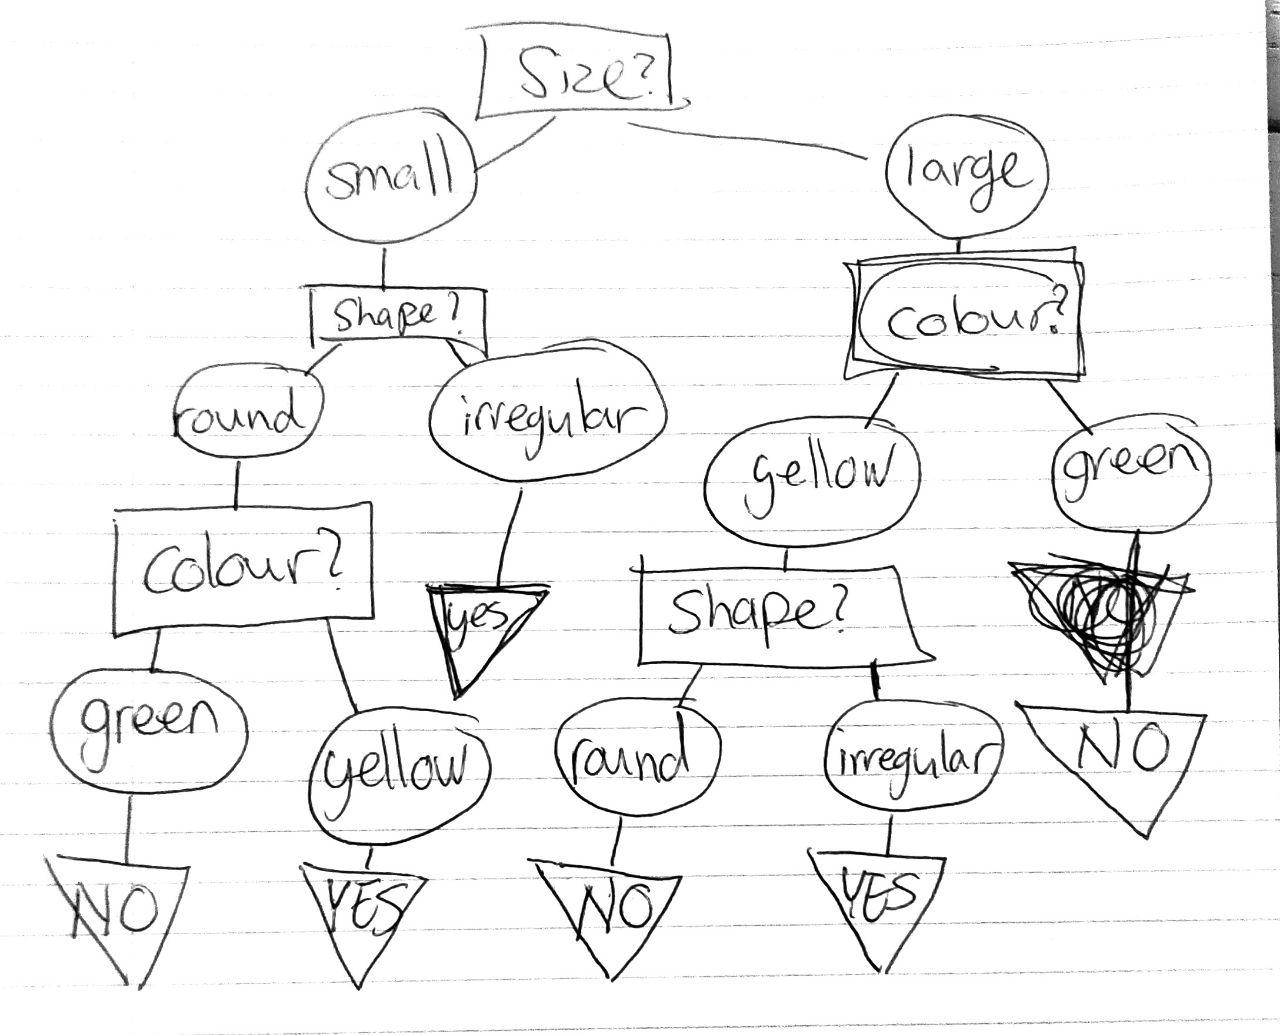 Size?
small
large
Shape?
colour?
round
irregular
yellow
green
Colour?
yes
Shape?
green
yellow
round
irregular
NO
NO
YES
NO
YES